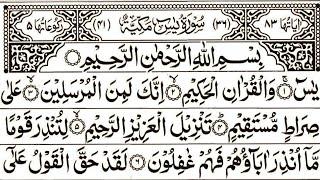 اٰیاتها ٨٣ (٣٦) سُوْرَةُ یٰسٓ مَكِّیَّةٌ (٤١) رکوعاتها ٥
بِسْمِ اللّٰهِ الرَّحْمٰنِ الرَّحِیْمِ
یٰسٓ ۚ﴿۱﴾ وَالْقُرْاٰنِ الْحَكِیْمِ ۙ﴿۲﴾ اِنَّكَ لَمِنَ الْمُرْسَلِیْنَ ۙ﴿۳﴾ عَلٰی
صِرَاطٍ مُّسْتَقِیْمٍ ؕ﴿۴﴾ تَنْزِیْلَ الْعَزِیْزِ الرَّحِیْمِ ۙ﴿۵﴾ لِتُنْذِرَ قَوْمًا
مَّاۤ اُنْذِرَ اٰبَآؤُهُمْ فَهُمْ غٰفِلُوْنَ ﴿۶﴾ لَقَدْ حَقَّ الْقَوْلُ عَلٰۤی